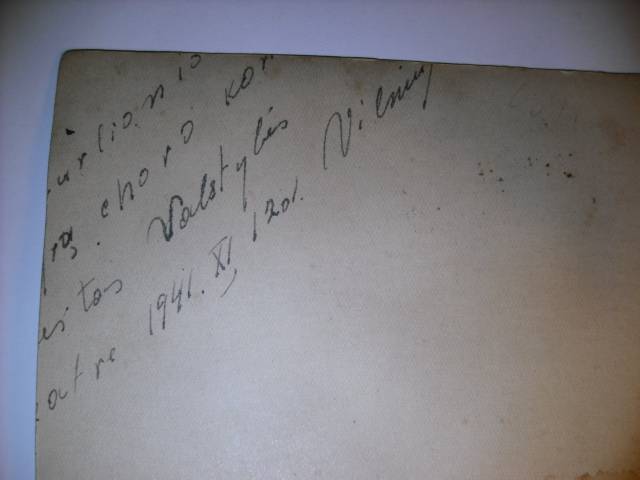 urlionio
rg. choro kon
ertas Valstybės
atre 1941. XI, 20d. Vilniuj